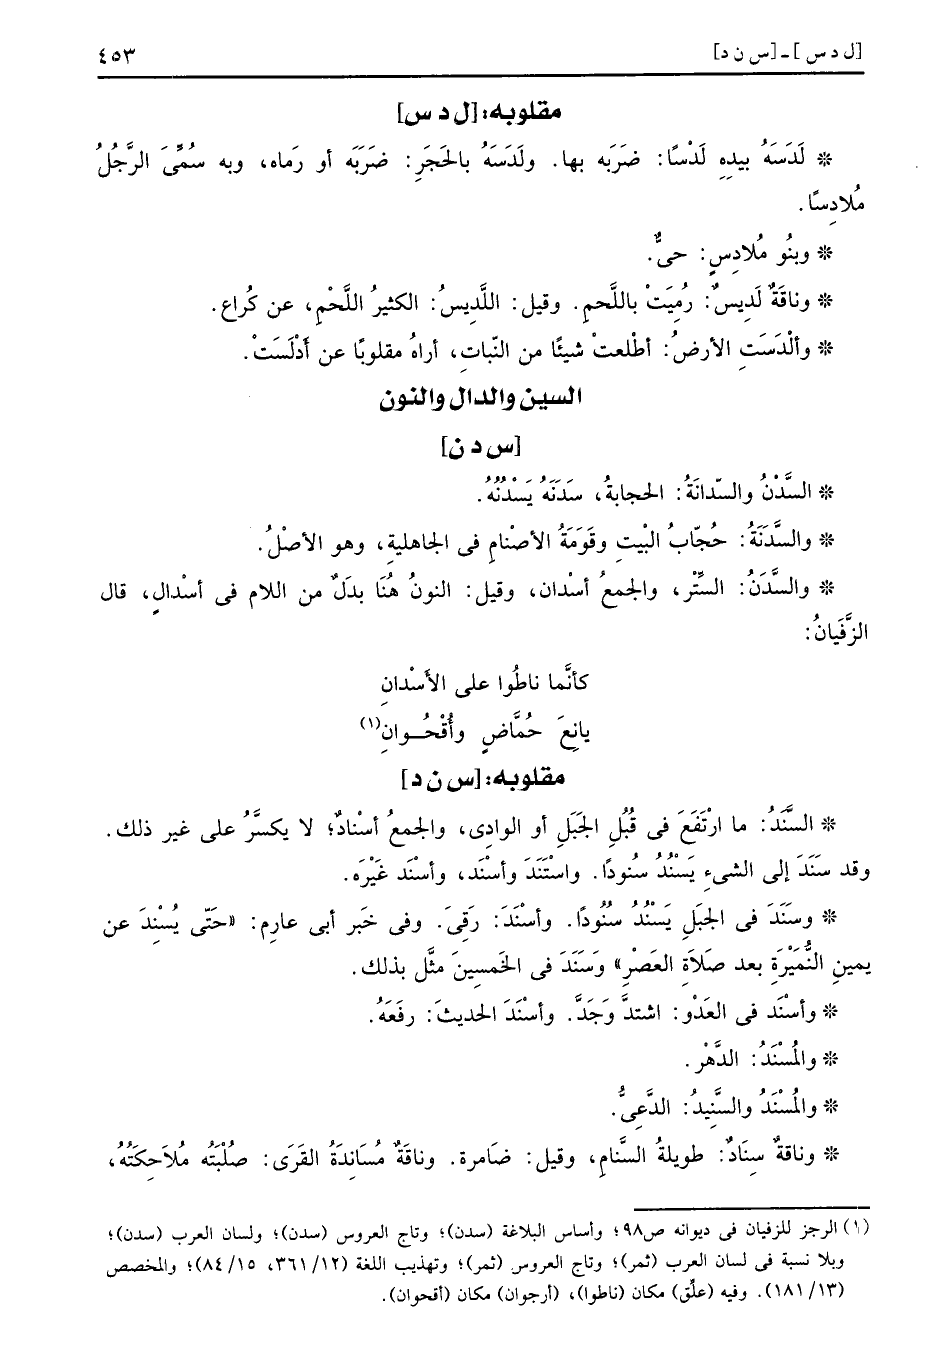 [ل د س] - [س ن د]
٤٥٣
مقلوبه: [ل د س]
* لَدَسَهُ بيدِهِ لَدْسًا: ضرَبَه بها. ولَدَسَهُ بالحَجَرِ: ضرَبَه أو رَماه، وبه سُمِّىَ الرَّجُلُ
مُلادِسًا.
* وبنُو مُلادِسٍ: حىٌّ.
* وناقَةٌ لَدِيسٌ: رُمِيَتْ باللَّحمِ. وقيل: اللَّدِيسُ: الكثيرُ اللَّحْمِ، عن كُراع.
* وألْدَسَتِ الأرضُ: أطْلعتْ شيئًا من النّباتِ، أراهُ مقلوبًا عن أَدْلَسَتْ.
السين والدال والنون
[س د ن]
* السَّدْنُ والسِّدانَةُ: الحجابةُ، سَدَنَهُ يَسْدُنُهُ.
* والسَّدَنَةُ: حُجّابُ البْيتِ وقَوَمَةُ الأصْنامِ فى الجاهليةِ، وهو الأصْلُ.
* والسَّدَنُ: السِّتْر، والجمعُ أسْدان، وقيل: النونُ هُنَا بدَلٌ من اللام فى أسْدالٍ، قال
الزَّفَيانُ:
كأنَّما ناطُوا على الأَسْدانِ
يانِعَ حُمَّاضٍ وأُقْحُـوانِ(١)
مقلوبه: [س ن د]
* السَّنَدُ: ما ارْتَفَعَ فى قُبُلِ الجَبَلِ أو الوادِى، والجمعُ أسْنادٌ؛ لا يكسَّرُ على غير ذلك.
وقد سنَدَ إلى الشىءِ يَسْنُدُ سُنُودًا. واستَنَدَ وأسْنَد، وأسْنَد غَيْرَه.
* وسَنَدَ فى الجبَلِ يَسْنُدُ سُنُودًا. وأسْنَدَ: رَقِىَ. وفى خَبَر أبى عارِمٍ: «حَتّى يُسْنِدَ عن
يمينِ النُّمَيْرَةِ بعد صَلاَةِ العَصْرِ» وَسَنَدَ فى الخَمسِينَ مثَّل بذلك.
* وأسْنَد فى العَدْوِ: اشتدَّ وَجَدَّ. وأسْنَدَ الحديثَ: رفَعَهُ.
* والمُسْنَدُ: الدَّهْر.
* والمُسْنَدُ والسَّنِيدُ: الدَّعِىُّ.
* وناقةٌ سِنَادٌ: طويلةُ السَّنامِ، وقيل: ضَامرة. وناقَةٌ مُسَانِدَةُ القَرَى: صُلْبَتُه مُلاَحِكَتُهُ،
(١) الرجز للزفيان فى ديوانه ص٩٨؛ وأساس البلاغة (سدن)؛ وتاج العروس (سدن)؛ ولسان العرب (سدن)؛
وبلا نسبة فى لسان العرب (ثمر)؛ وتاج العروس (ثمر)؛ وتهذيب اللغة (١٢/٣٦١، ١٥/٨٤)؛ والمخصص
(١٣/١٨١). وفيه (علّق) مكان (ناطوا)، (أرجوان) مكان (أقحوان).